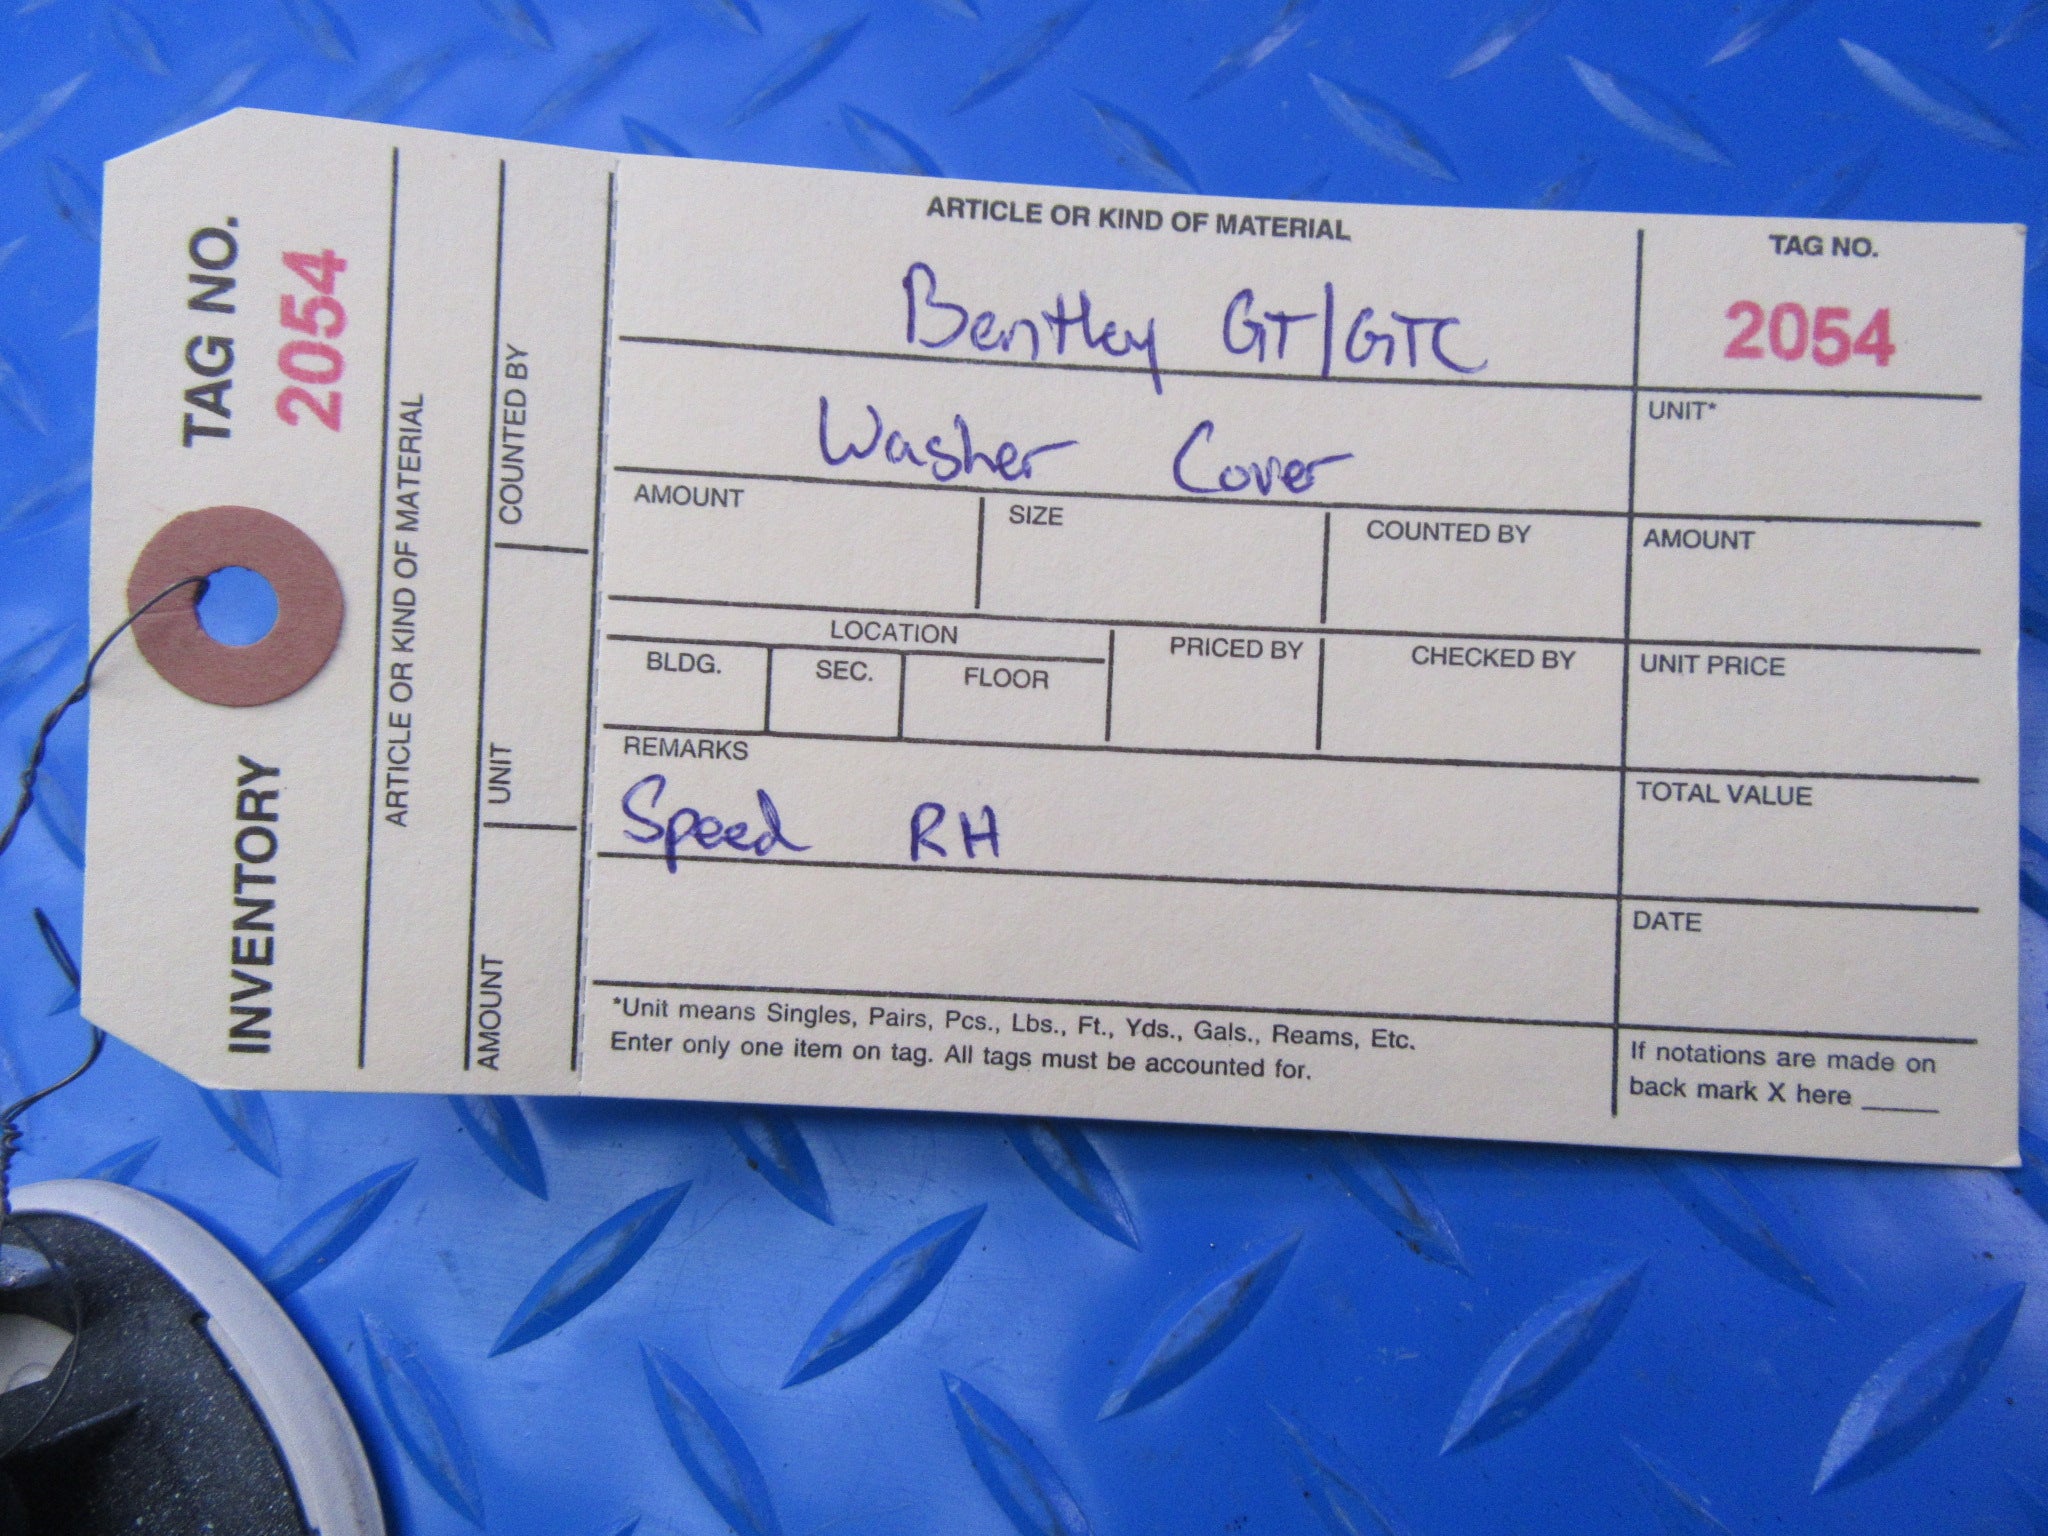 TAG NO.
2054
INVENTORY
ARTICLE OR KIND OF MATERIAL
COUNTED BY
UNIT
AMOUNT
ARTICLE OR KIND OF MATERIAL
Bentley GT/GTC
Washer Cover
TAG NO.
2054
UNIT*
AMOUNT
SIZE
COUNTED BY
AMOUNT
LOCATION
BLDG.
SEC.
FLOOR
PRICED BY
CHECKED BY
UNIT PRICE
REMARKS
Speed RH
TOTAL VALUE
DATE
*Unit means Singles, Pairs, Pcs., Lbs., Ft., Yds., Gals., Reams, Etc.
Enter only one item on tag. All tags must be accounted for.
If notations are made on
back mark X here _____